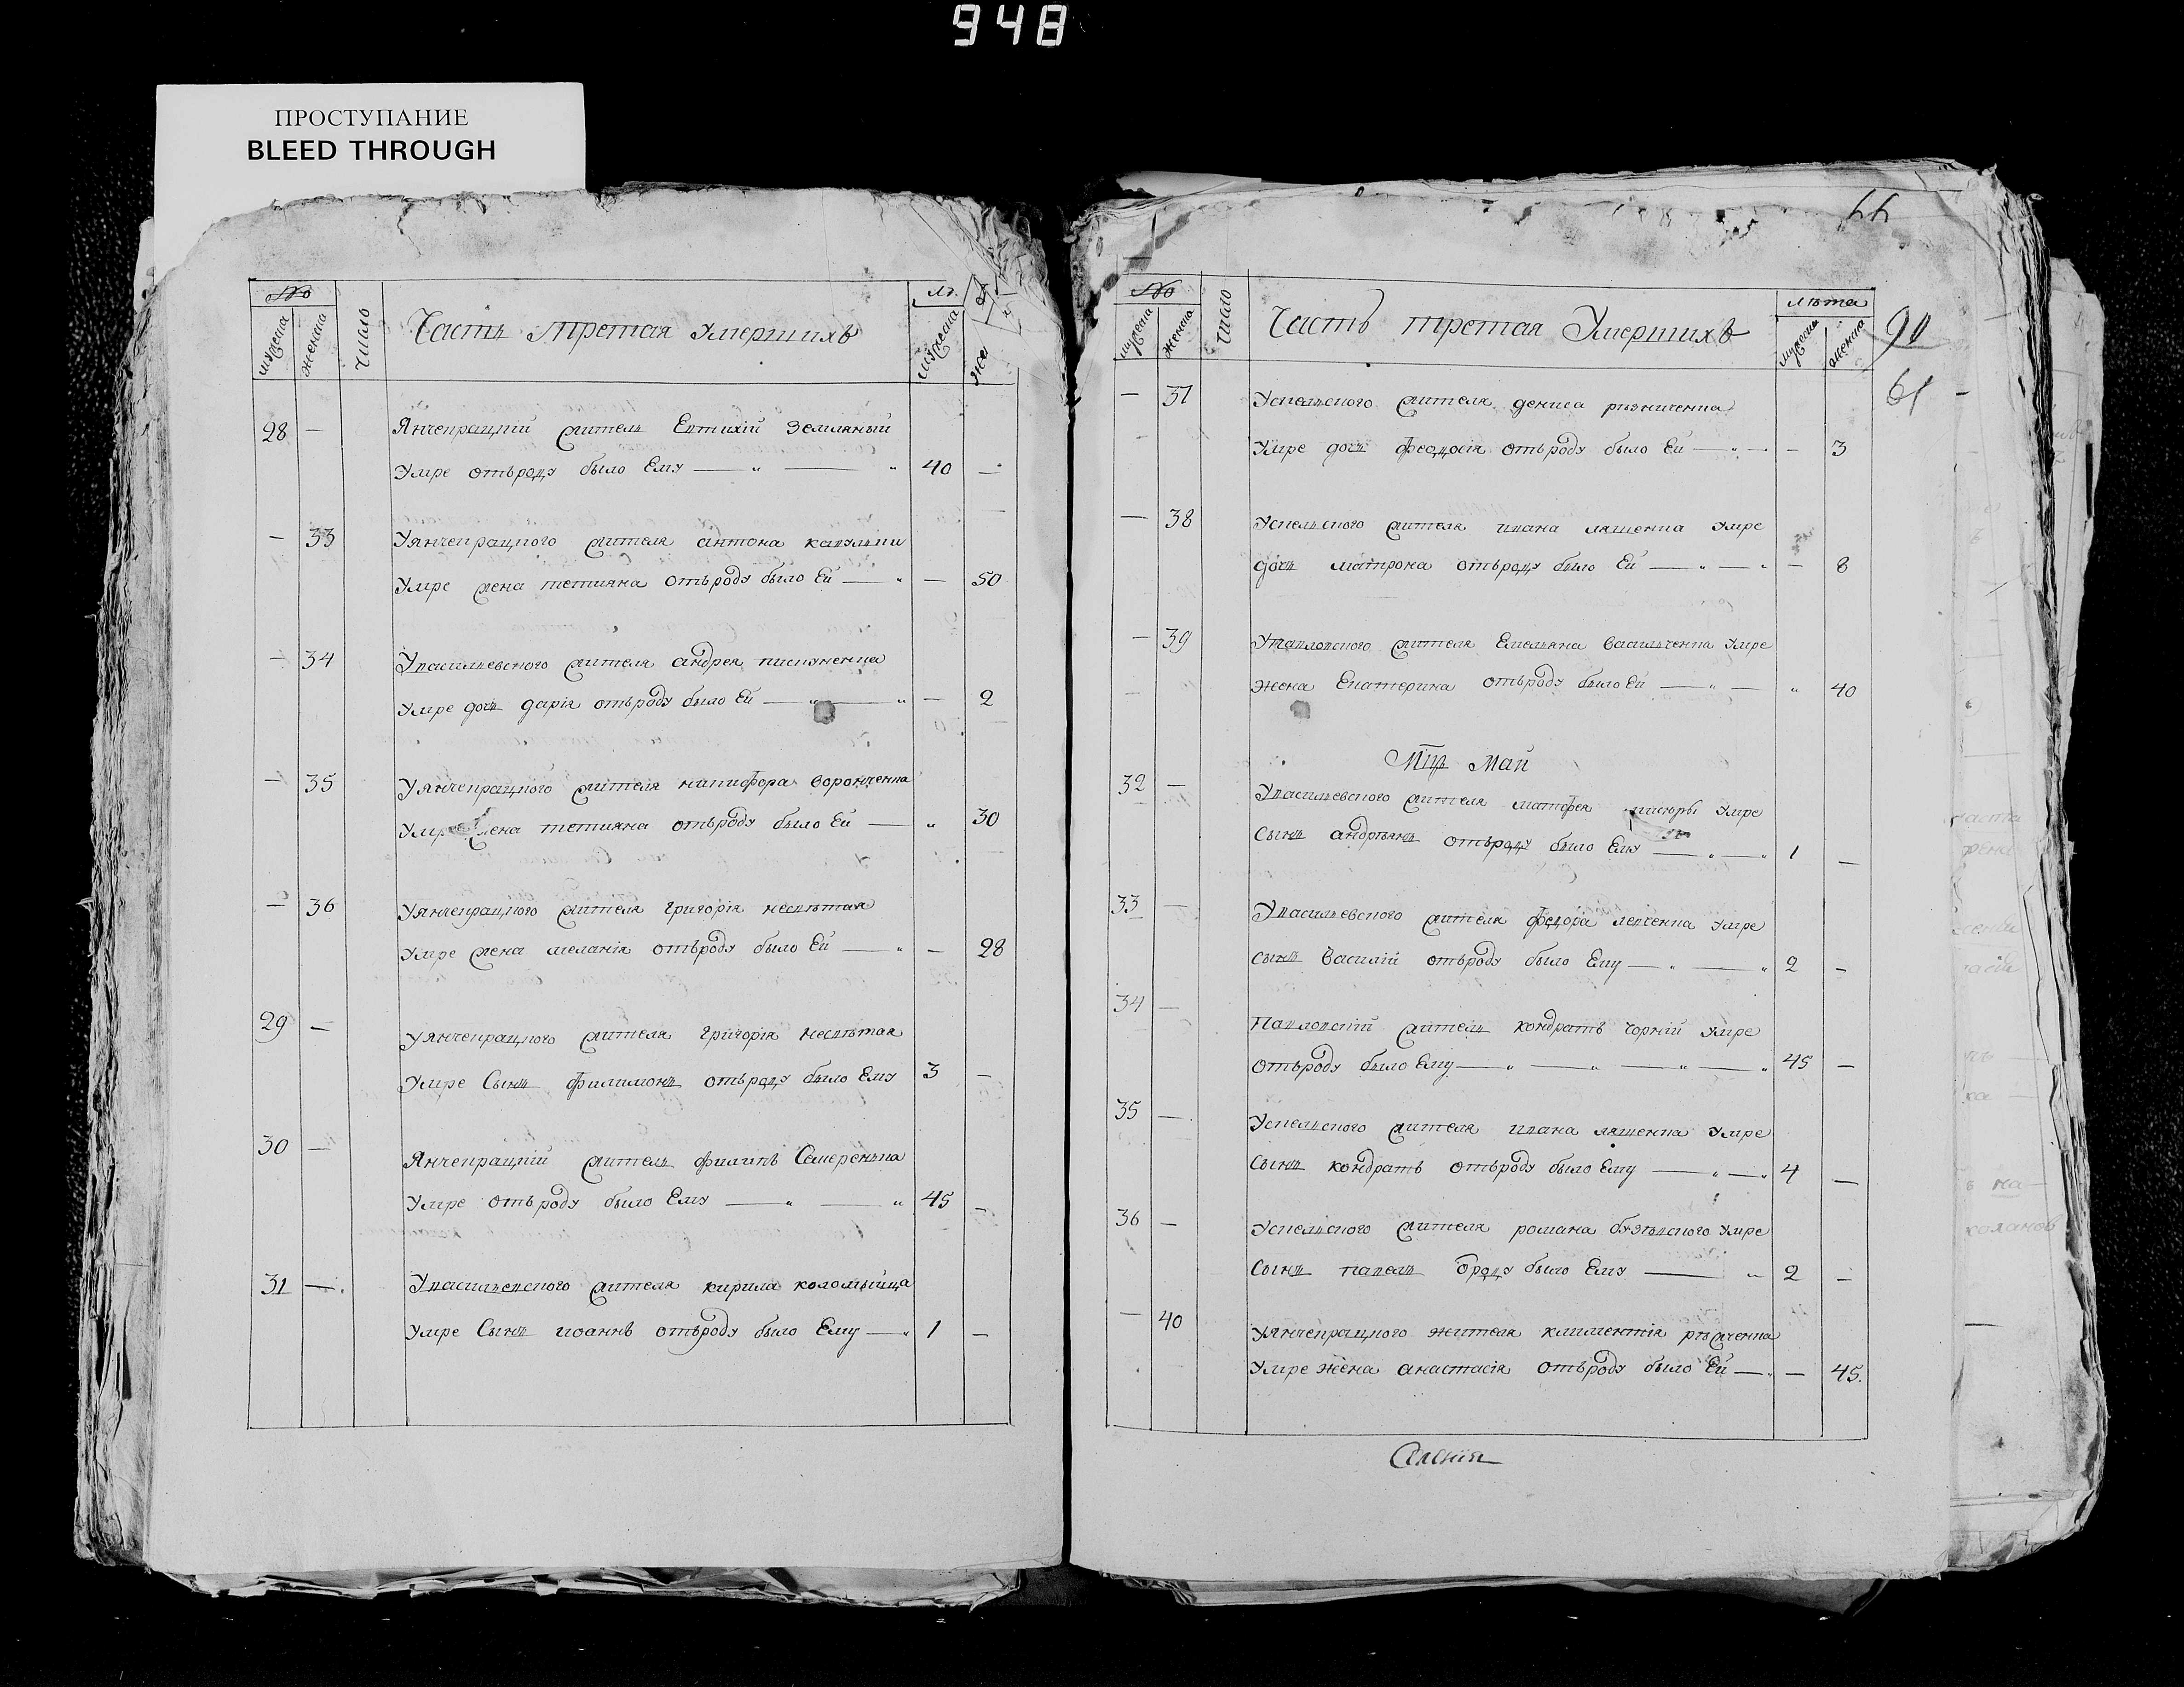 948
ПРОСТУПАНИЕ
BLEED THROUGH
№
мужена
женска
число
Часть третая Умершихъ
Лѣ
мужена
жен
28 — Янчекрацкій житель Евтихій Земляный
Умре отъроду было Ему — „ — „ 40 —
— 33 Уянчекрацкого жителя антона кавульки
Умре жена тетияна отъроду было Ей — „ — 50
— 34 Увасильевского жителя андрея пискуненка
Умре дочь дарія отъроду было Ей — „ — „ — 2
— 35 Уянчекрацкого жителя никифора воронченка
Умре жена тетияна отъроду было Ей — „ 30
— 36 Уянчекрацкого жителя григорія несвѣтая
Умре жена меланія отъроду было Ей — „ — 28
29 — Уянчекрацкого жителя григорія несвѣтая
Умре Сынъ филимонъ отъроду было Ему 3 —
30 — Янчекрацкій житель филипъ Семеренька
Умре отъроду было Ему — „ — „ 45 —
31 — Увасильевского жителя кирила коломыйца
Умре Сынъ иоаннъ отъроду было Ему — „ 1 —
66
№
мужена
женска
число
Часть третая Умершихъ
лѣта
мужена
женска
90
61
— 37 Успельского жителя дениса рѣзниченка
Умре дочь феодосія отъроду было Ей — „ — — 3
— 38 Успельского жителя ивана ляшенка Умре
дочь матрона отъроду было Ей — „ — „ — 8
— 39 Упавловского жителя Емельяна василченка Умре
жена Екатерина отъроду было Ей — „ — „ 40
Мцъ Май
32 — Увасильевского жителя матфея Умре
Сынъ андрѣянъ отъроду было Ему — „ — „ 1 —
33 — Увасильевского жителя федора левченка Умре
сынъ василій отъроду было Ему — „ — „ 2 —
34 — Павловскій житель кондратъ чорній умре
отъроду было Ему — „ — „ — „ — „ 45 —
35 — Успельского жителя ивана ляшенка Умре
Сынъ кондратъ отъроду было Ему — „ — „ 4 —
36 — Успельского жителя романа Умре
Сынъ павелъ ороду было Ему — „ 2 —
— 40 Уянчекрацкого жителя климентія
Умре жена анастасія отъроду было Ей — „ — 45.